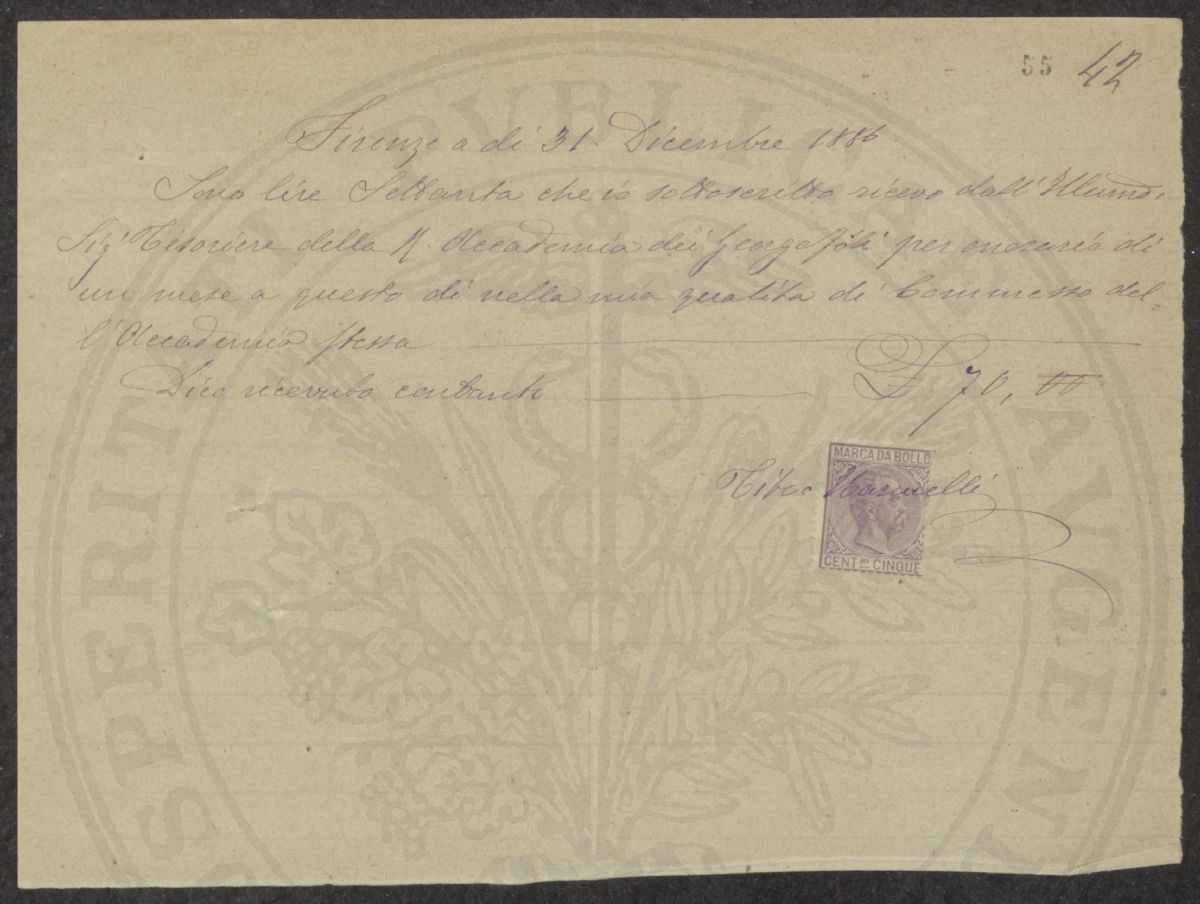 55 42
Firenze a dì 31. Dicembre 1886.
Sono lire Settanta che io sottoscritto ricevo dall' Illumo.
Sigr Tesoriere della R. Accademia dei Georgofili per onorario di
un mese a questo dì nella mia qualità di Commesso del-
l'Accademia stessa
Dico ricevuto contanti £ 70, 00
MARCA DA BOLLO
CENT.MI CINQUE
PROSPERITATI PVBLICAE AVGENDAE